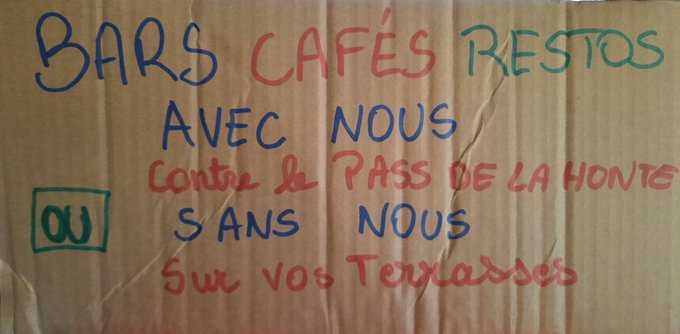 BARS CAFÉS RESTOS
AVEC NOUS
Contre le PASS DE LA HONTE
OU SANS NOUS
Sur vos Terrasses